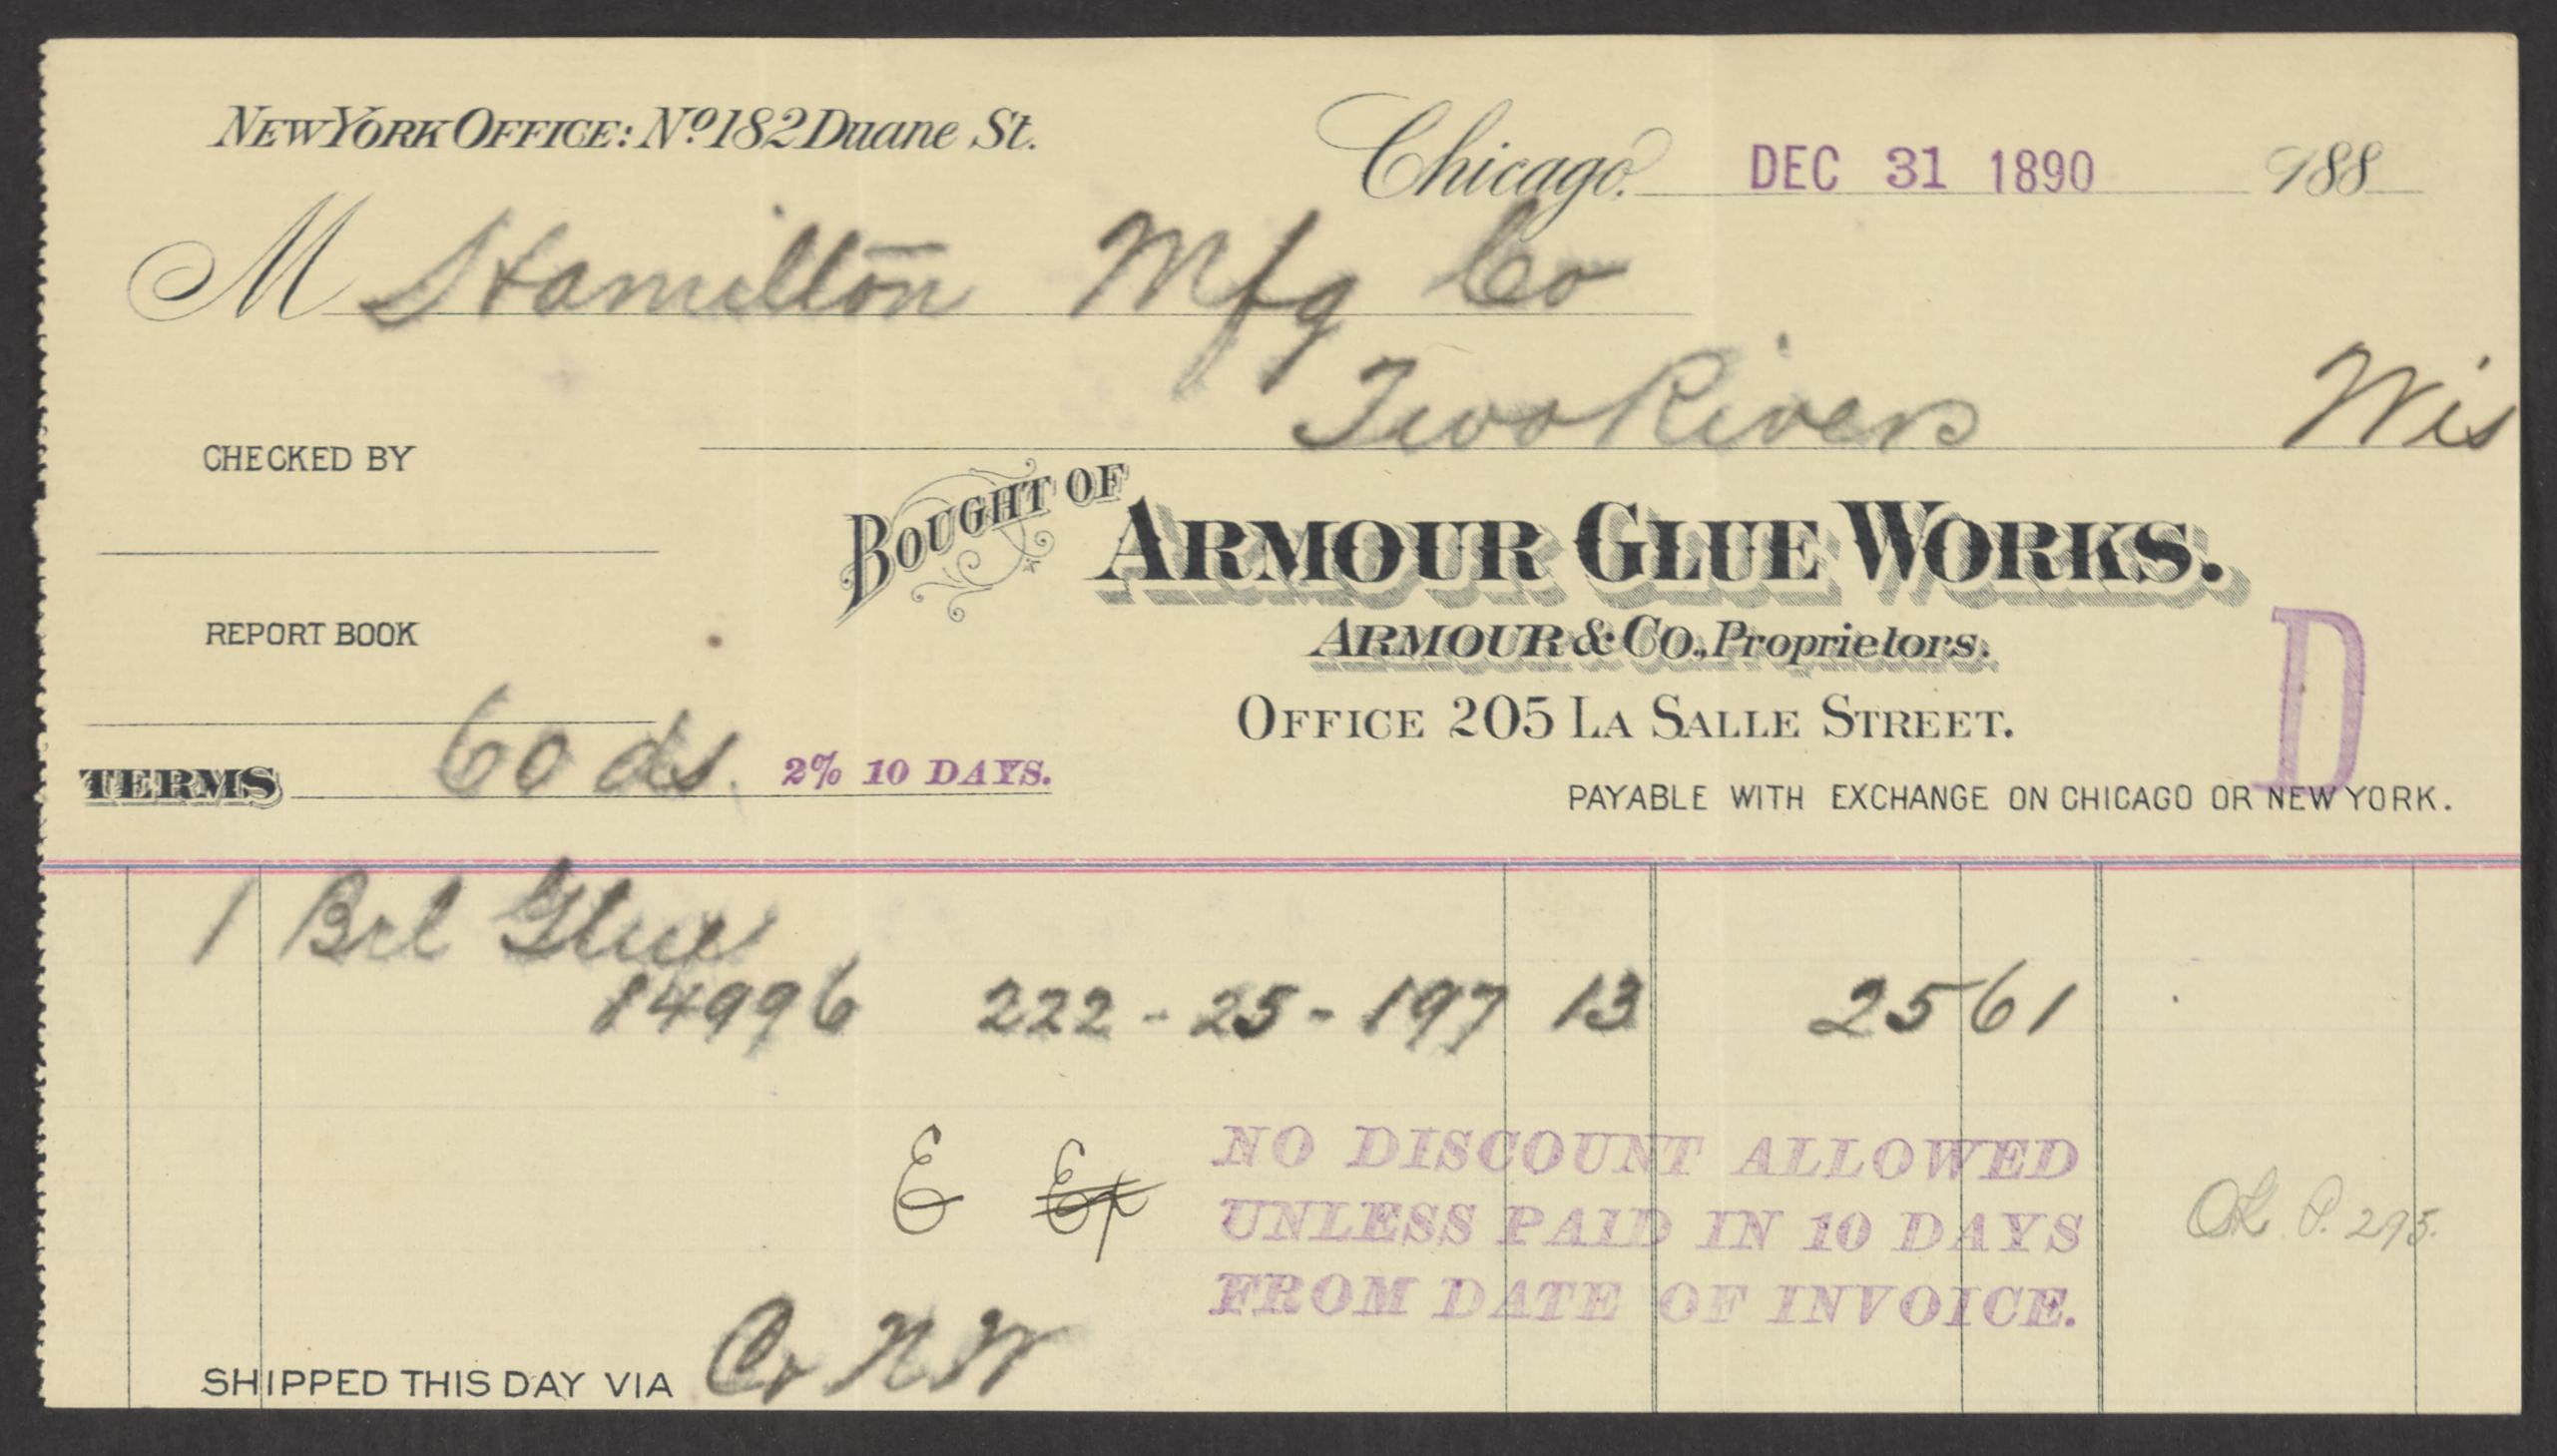 NEW YORK OFFICE: No. 182 Duane St.
Chicago, DEC 31 1890 188
M Hamilton Mfg Co
Two Rivers Wis
CHECKED BY
BOUGHT OF ARMOUR GLUE WORKS.
REPORT BOOK
ARMOUR & CO., Proprietors.
OFFICE 205 LA SALLE STREET.
D
TERMS 60 ds. 2% 10 DAYS.
PAYABLE WITH EXCHANGE ON CHICAGO OR NEW YORK.
1 Brl Glue
14996 222 - 25 - 197 13 25 61
E Ex
NO DISCOUNT ALLOWED
UNLESS PAID IN 10 DAYS
FROM DATE OF INVOICE.
OK. P. 295.
SHIPPED THIS DAY VIA C N W